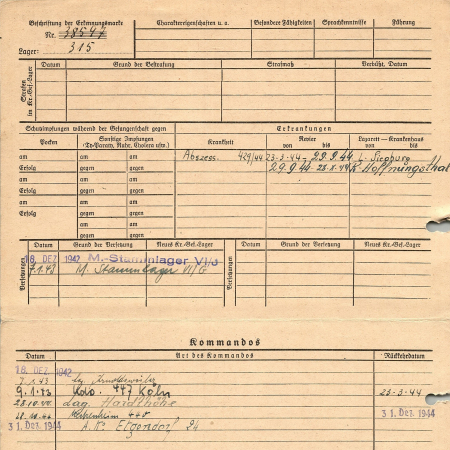 Beschriftung der Erkennungsmarke
Nr. 38547
Lager: 315
Charaktereigenschaften u. a.
Besondere Fähigkeiten
Sprachkenntnisse
Führung
Strafen im Kr.-Gef.-Lager
Datum
Grund der Bestrafung
Strafmaß
Verbüßt, Datum
Schutzimpfungen während der Gefangenschaft gegen
Erkrankungen
Pocken
Sonstige Impfungen
(Ty-Paraty, Ruhr, Cholera usw.)
Krankheit
Revier
von bis
Lazarett — Krankenhaus
von bis
am am gegen
Erfolg gegen
am am gegen
Erfolg gegen
am am
Erfolg gegen
am am
gegen gegen
Abszess. 429/44 23-3-44 - 29.9.44 L. Siegburg
29.9.44 Hoffnungsthal
Versetzungen
Datum
Grund der Versetzung
Neues Kr.-Gef.-Lager
Versetzungen
Datum
Grund der Versetzung
Neues Kr.-Gef.-Lager
18. DEZ. 1942 M.-Stammlager VI/J
7.1.43 M. Stammlager VI/G
Kommandos
Datum
Art des Kommandos
Rückkehrdatum
18. DEZ. 1942
7.1.43 Arnoldsweiler
9.1.43 Kdo. 447 Köln 23-3-44
Lag. Hardthöhe
31. Dez. 1944
31. Dez. 1944 A.K. Elgendorf